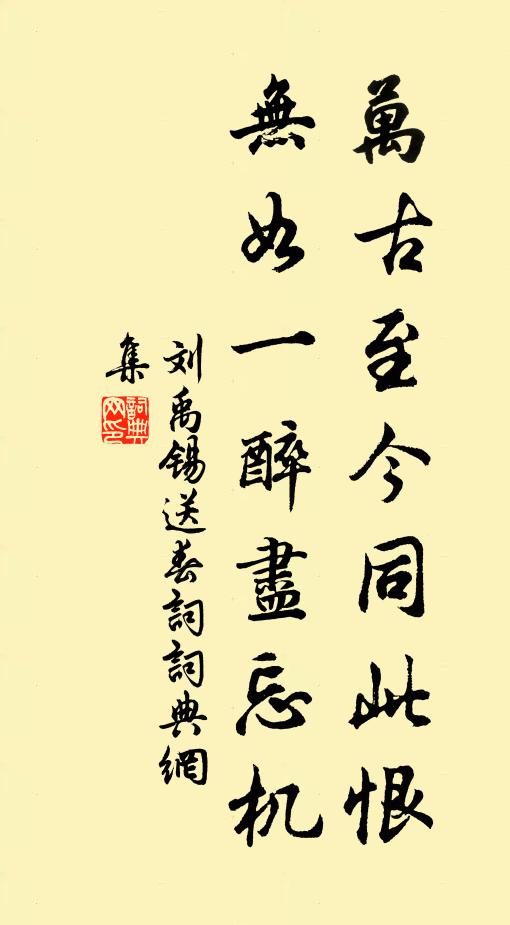 萬古至今同此恨
無如一醉盡忘机
刘禹锡送春詞詞典網
集
詞典
网印